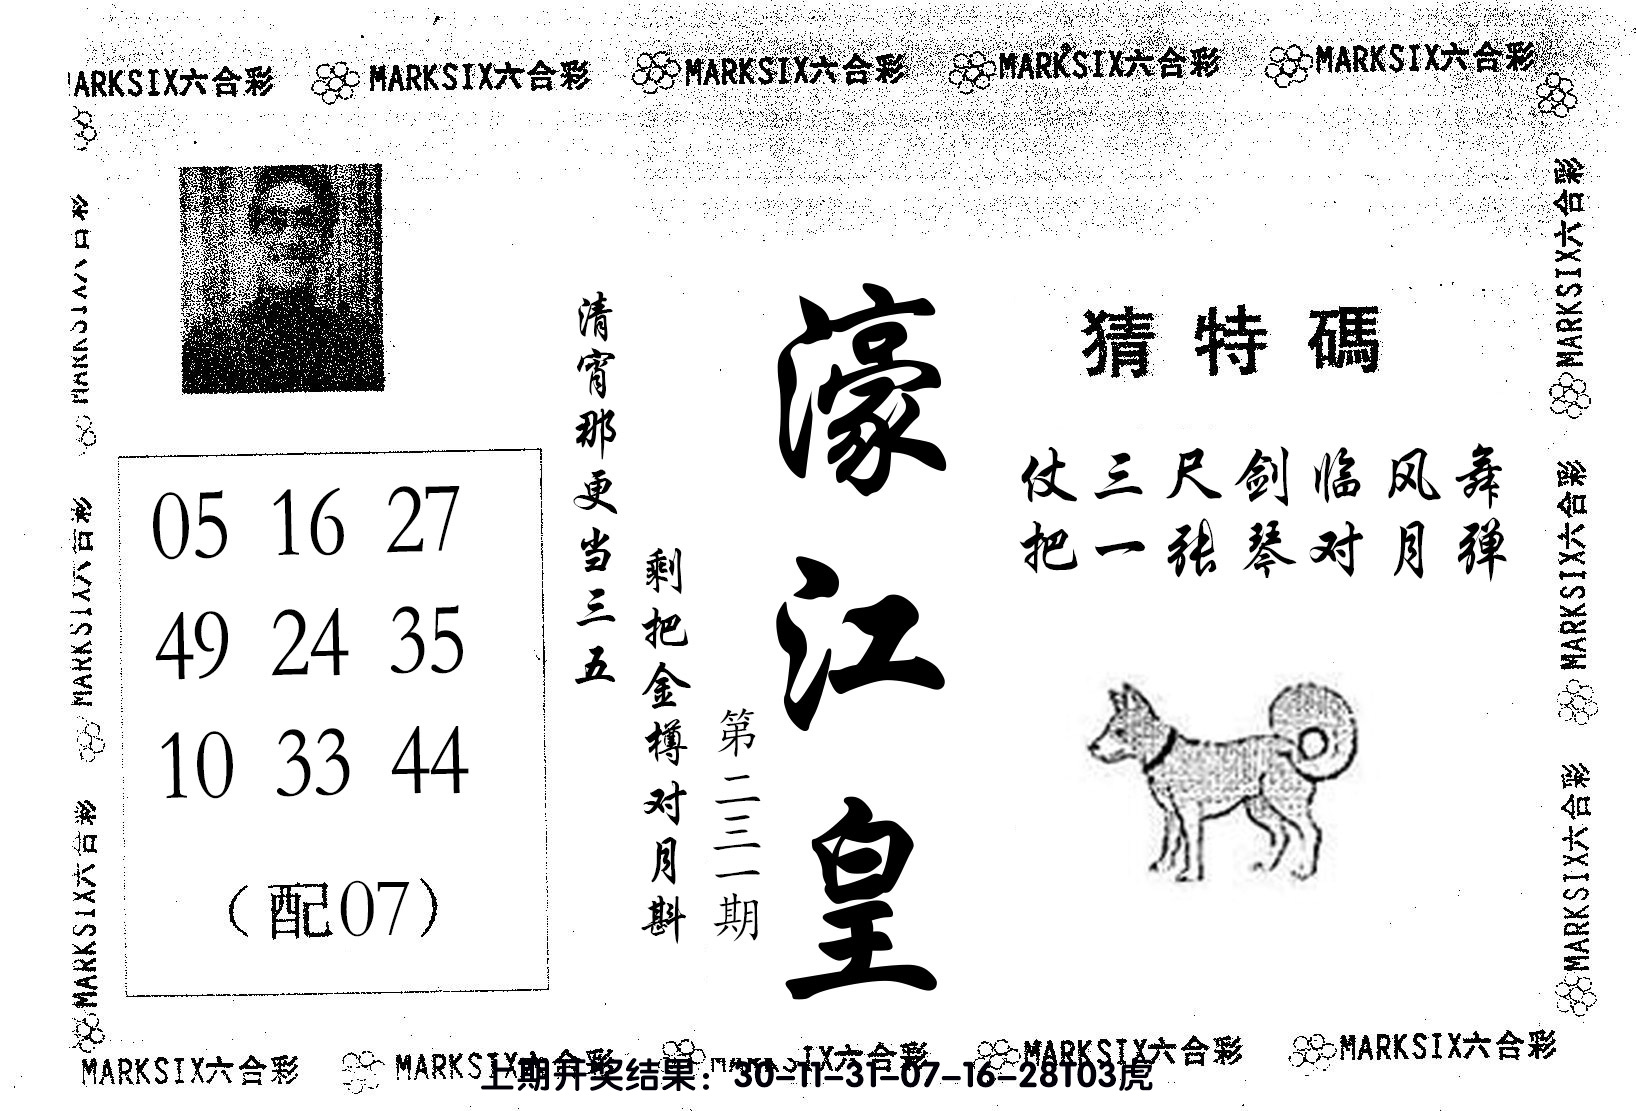 MARKSIX六合彩 MARKSIX六合彩 MARKSIX六合彩 MARKSIX六合彩 MARKSIX六合彩
MARKSIX六合彩
MARKSIX六合彩
MARKSIX六合彩
05 16 27
49 24 35
10 33 44
（配07）
清宵那更当三五
剩把金樽对月斟
第二三一期
濠江皇
猜特碼
仗三尺剑临风舞
把一张琴对月弹
MARKSIX六合彩
MARKSIX六合彩
MARKSIX六合彩
MARKSIX六合彩 MARKSIX六合彩 MARKSIX六合彩 MARKSIX六合彩 MARKSIX六合彩
上期开奖结果：30-11-31-07-16-28T03虎